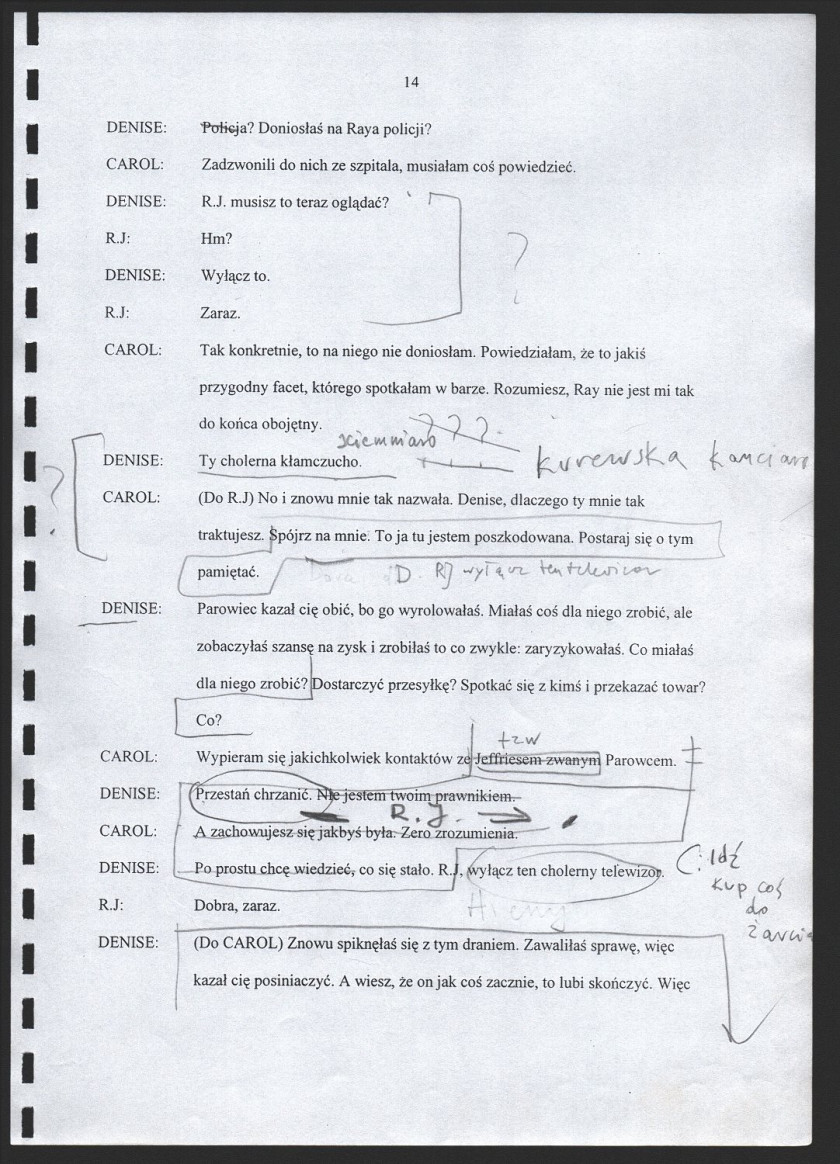 14
DENISE: Policja? Doniosłaś na Raya policji?
CAROL: Zadzwonili do nich ze szpitala, musiałam coś powiedzieć.
DENISE: R.J. musisz to teraz oglądać?
?
R.J: Hm?
DENISE: Wyłącz to.
R.J: Zaraz.
CAROL: Tak konkretnie, to na niego nie doniosłam. Powiedziałam, że to jakiś
przygodny facet, którego spotkałam w barze. Rozumiesz, Ray nie jest mi tak
do końca obojętny.
???
ściemniaro
kurewska kanciaro
DENISE: Ty cholerna kłamczucho.
?
CAROL: (Do R.J) No i znowu mnie tak nazwała. Denise, dlaczego ty mnie tak
traktujesz. Spójrz na mnie. To ja tu jestem poszkodowana. Postaraj się o tym
pamiętać.
D. RJ wyłącz ten telewizor
DENISE: Parowiec kazał cię obić, bo go wyrolowałaś. Miałaś coś dla niego zrobić, ale
zobaczyłaś szansę na zysk i zrobiłaś to co zwykle: zaryzykowałaś. Co miałaś
dla niego zrobić? Dostarczyć przesyłkę? Spotkać się z kimś i przekazać towar?
Co?
tzw
CAROL: Wypieram się jakichkolwiek kontaktów ze Jeffriesem zwanym Parowcem.
DENISE: Przestań chrzanić. Nie jestem twoim prawnikiem.
R.J.
CAROL: A zachowujesz się jakbyś była. Zero zrozumienia.
DENISE: Po prostu chcę wiedzieć, co się stało. R.J, wyłącz ten cholerny telewizor.
C: Idź
kup coś
do
żarcia
R.J: Dobra, zaraz.
DENISE: (Do CAROL) Znowu spiknęłaś się z tym draniem. Zawaliłaś sprawę, więc
kazał cię posiniaczyć. A wiesz, że on jak coś zacznie, to lubi skończyć. Więc